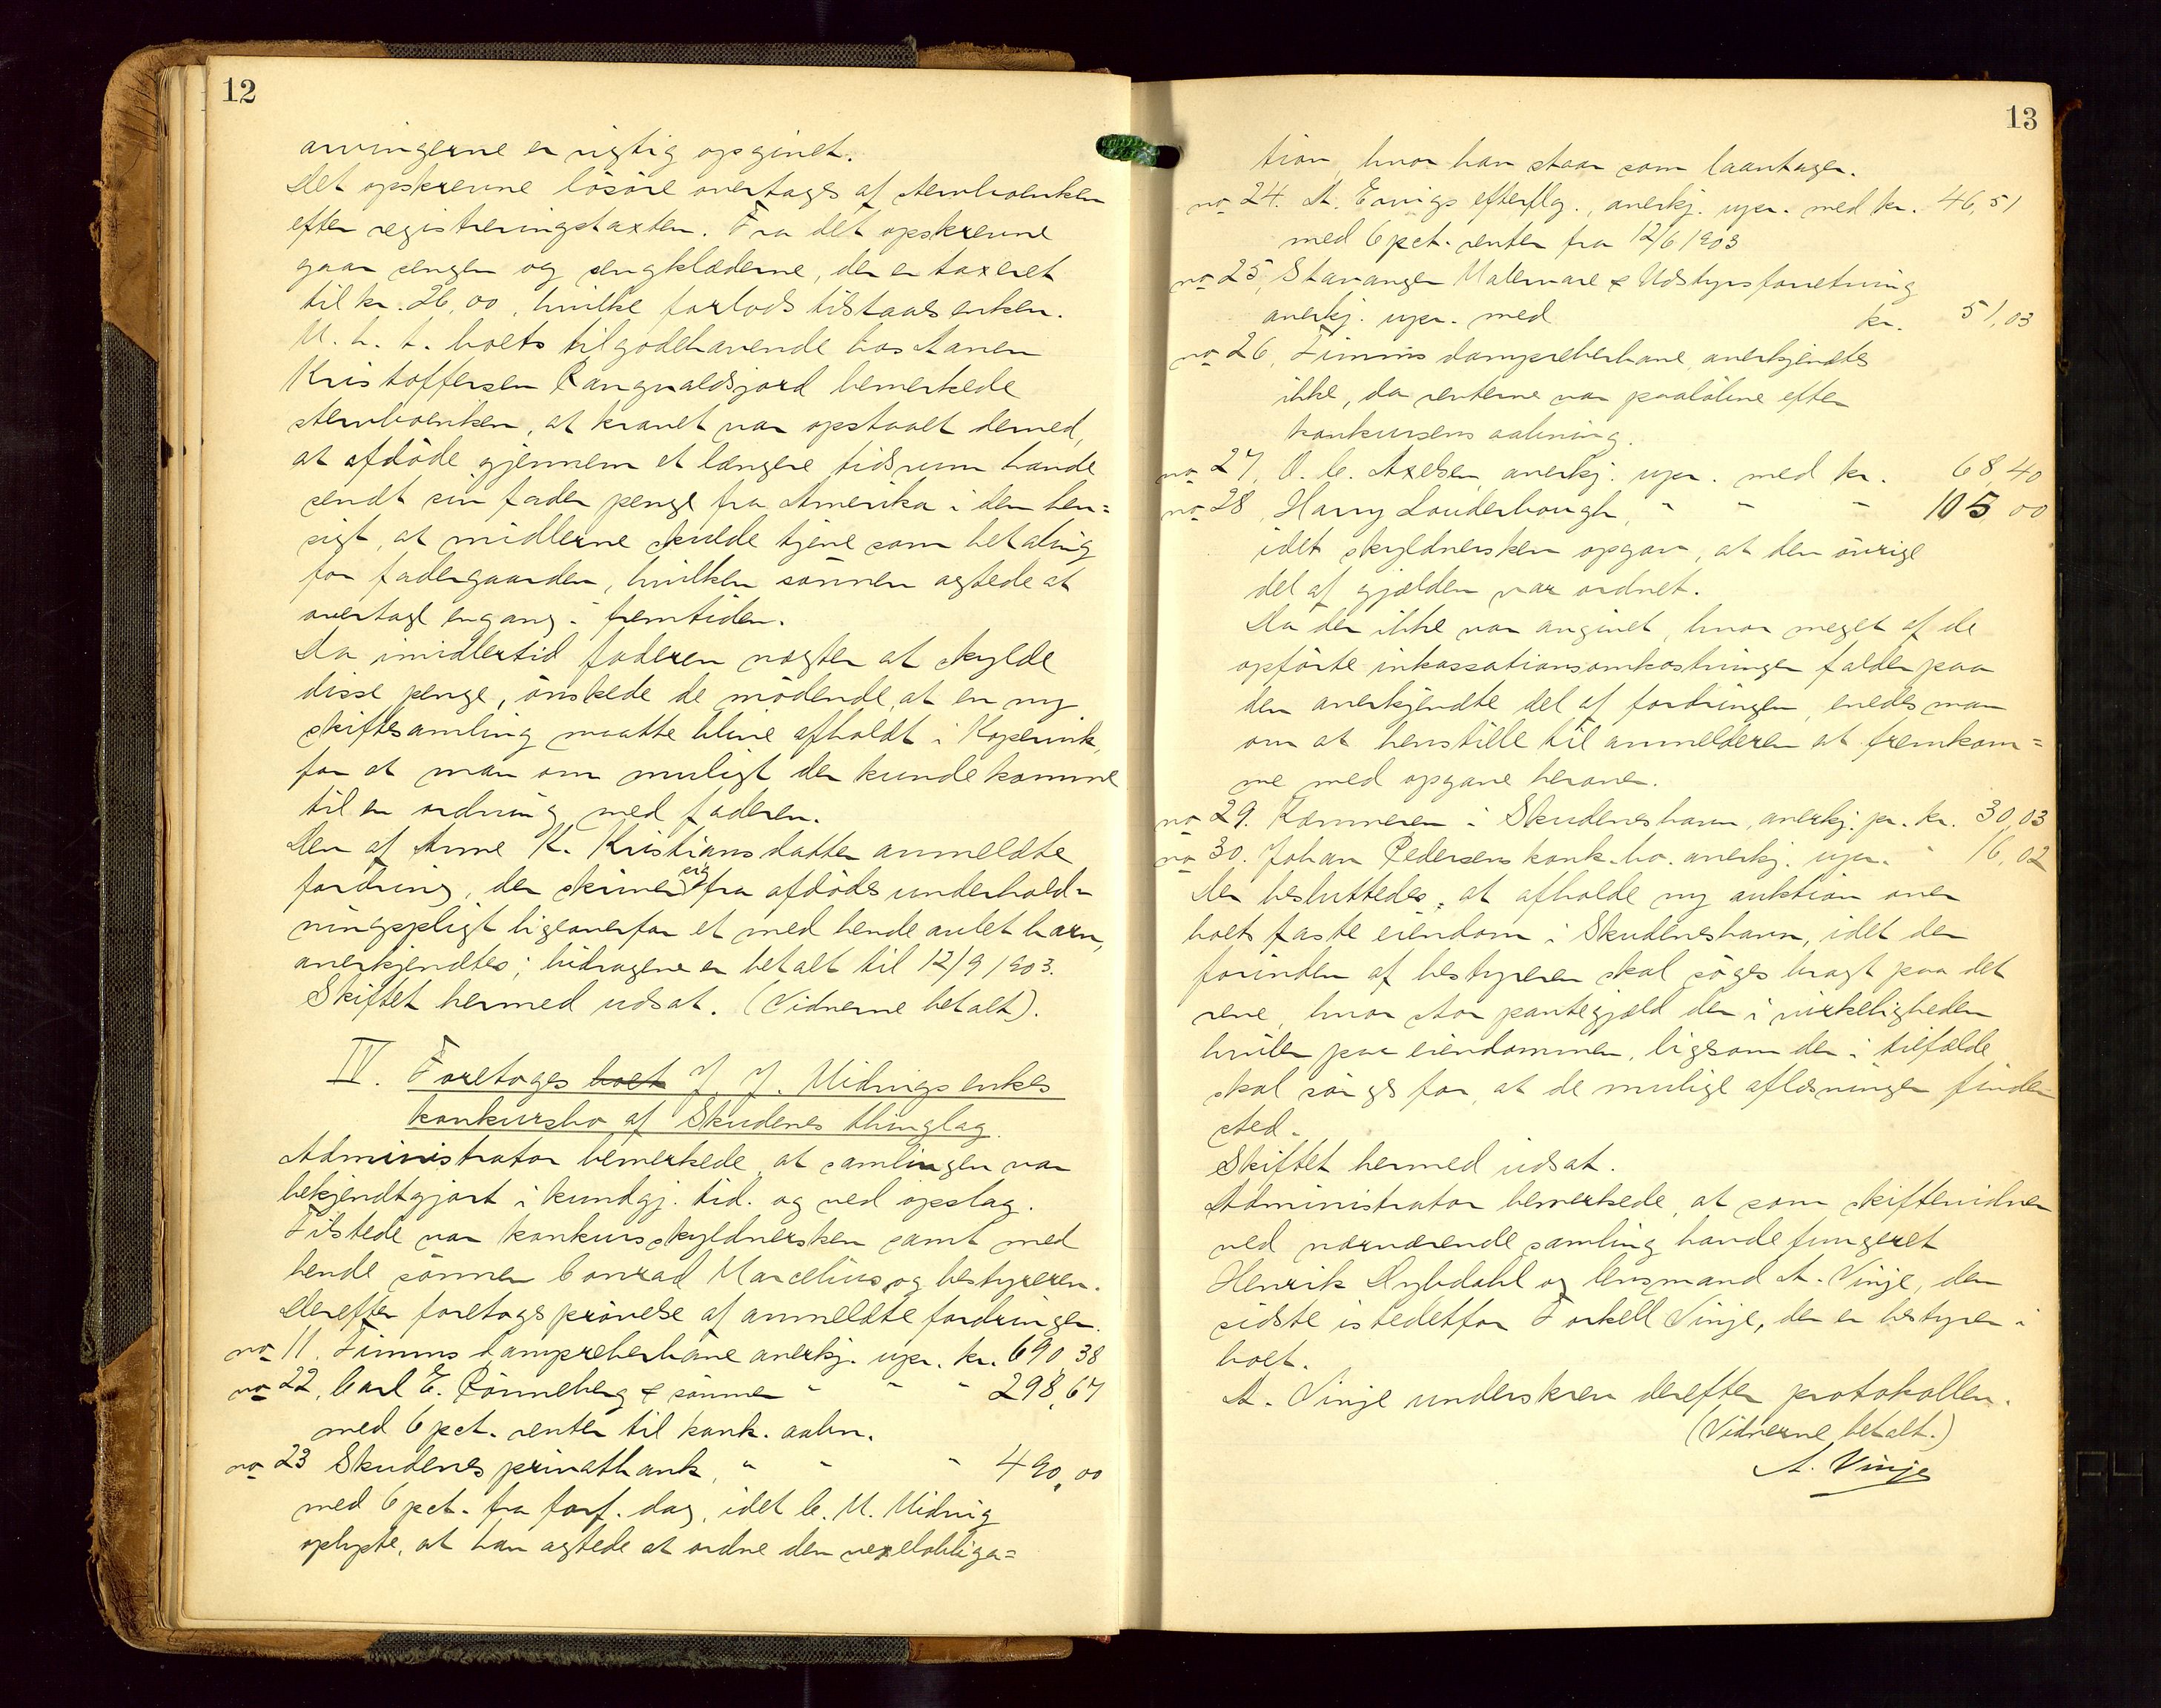 12
arvingerne er rigtig opgivet.
Det opskrevne lösöre overtages af stervboenken
efter registreringstaxten. Fra det opskrevne
gaar sengen og sengklæderne, der er taxeret
til kr. 26,00, hvilke forlods tilstaaes enken.
M. h. t. boets tilgodehavende hos
Kristoffersen Rangvaldsjord bemerkede
stervboenken, at kravet var opstaaet derved,
at afdöde gjennem et længere tidsrum havde
sendt sin fader penge fra Amerika i den hen=
sigt, at midlerne skulde tjene som betaling
for fadergaarden, hvilken sönnen agtede at
overtage engang i fremtiden.
Da imidlertid faderen nægter at skylde
disse penge, önskede de mödende, at en ny
skiftesamling maatte blive afholdt i Kopervik,
for at man om muligt der kunde komme
til en ordning med faderen.
Den af Anne K. Kristiansdatter anmeldte
fordring, der skriver sig fra afdödes underhold-
ningspligt ligeoverfor et med hende avlet barn,
anerkjendtes; bidragene er betalt til 12/9 1903.
Skiftet hermed udsat. (Vidnerne betalt).
IV. Foretoges boet J. J. Midvigs enkes
konkursbo af Skudenes thinglag.
Administrator bemerkede, at samlingen var
bekjendtgjort i kundgj. tid. og ved opslag.
Tilstede var konkursskyldnersken samt med
hende sönnen Conrad Marcelius og bestyreren.
Derefter foretoges prövelse af anmeldte fordringer.
no 11. Timms dampreberbane anerkj. upr. kr. 690,38
no 22, Carl E. Rönneberg & sönner " " " 298,67
med 6 pct. renter til konk. aabn.
no 23 Skudenes privatbank, " " " 490,00
med 6 pct. fra forf. dag, idet C. M. Midvig
oplyste, at han agtede at ordne den vexelobliga=
13
tion, hvor han staar som laantager.
no 24. A. Enigs efterflg., anerkj. upr. med kr. 46,51
med 6 pct. renter fra 12/6 1903
no 25, Stavanger Malervare & Udstyrsforretning
anerkj. upr. med kr. 51,03
no 26, Timms dampreberbane anerkjendtes
ikke, da renterne var paalöbne efter
konkursens aabning.
no 27, O. C. Axelsen, anerkj. upr. med kr. 68,40
no 28, Harry Louderbough, " " " 105,00
idet skyldnersken opgav, at den övrige
del af gjælden var ordnet.
Da der ikke var angivet, hvor meget af de
opförte inkassationsomkostninger falder paa
den anerkjendte del af fordringen, enedes man
om at henstille til anmelderen at fremkom=
me med opgave herover.
no 29. Kæmneren i Skudeneshavn, anerkj. pr. kr. 30,03
no 30. Johan Pedersens konk. bo. anerkj. upr. " 16,02
Der besluttedes, at afholde ny auktion over
boets faste eiendom i Skudeneshavn, idet der
forinden af bestyreren skal söges bragt paa det
rene, hvor stor pantegjæld der i virkeligheden
hviler paa eiendommen, ligesom der i tilfælde
skal sörges for, at de mulige aflæsninger finder
sted.
Skiftet hermed udsat.
Administrator bemerkede, at som skiftevidner
ved nærværende samling havde fungeret
Henrik Dybdahl og lensmand A. Vinje, den
sidste istedetfor Torkell Vinje, der er bestyrer i
boet.
A. Vinje underskrev derefter protokollen.
(Vidnerne betalt.)
A. Vinje